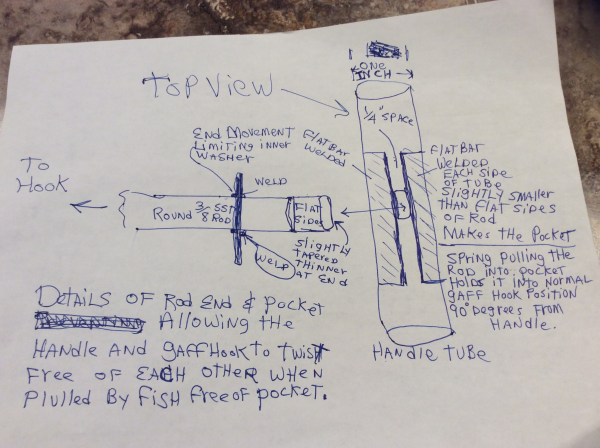 ONE
INCH
TOP VIEW
1/4" SPACE
END MOVEMENT
LIMITING INNER
WASHER
FLATBAR
WELDED
FLATBAR
WELDED
EACH SIDE
OF TUBE
SLIGHTLY SMALLER
THAN FLAT SIDES
OF ROD
MAKES THE POCKET
TO
HOOK
WELD
ROUND 3/8 SST ROD
FLAT
SIDES
WELD
SLIGHTLY
TAPERED
THINNER
AT END
SPRING PULLING THE
ROD INTO POCKET
HOLDS IT INTO NORMAL
GAFF HOOK POSITION
90° DEGREES FROM
HANDLE.
HANDLE TUBE
DETAILS OF ROD END & POCKET
ALLOWING THE
HANDLE AND GAFF HOOK TO TWIST
FREE OF EACH OTHER WHEN
PLULLED BY FISH FREE OF POCKET.